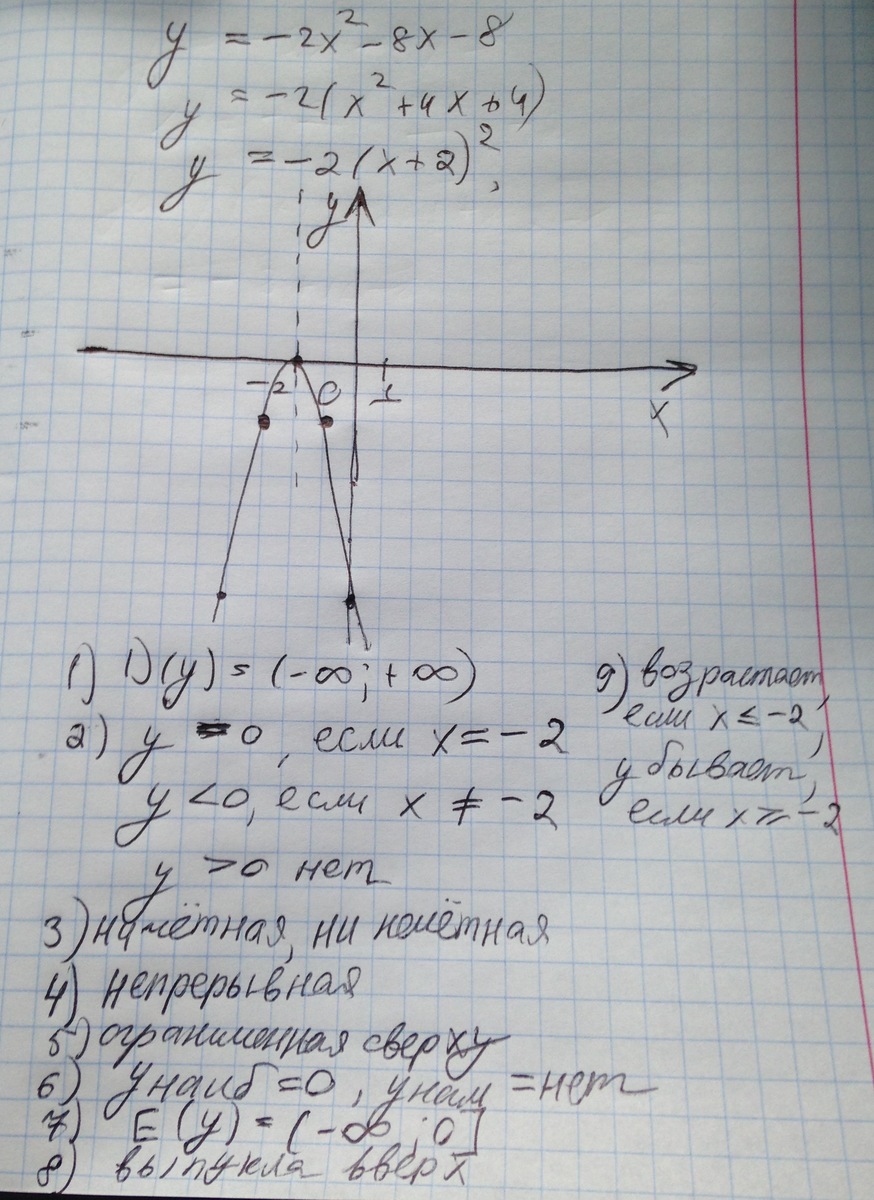 y = -2x² - 8x - 8
y = -2(x² + 4x + 4)
y = -2(x+2)²,
y
-2 0 1
x
1) D(y) = (-∞; +∞)
2) y = 0, если x = -2
y < 0, если x ≠ -2
y > 0 нет
3) ни чётная, ни нечётная
4) непрерывная
5) ограниченная сверху
6) y наиб = 0, y наим = нет
7) E(y) = (-∞; 0]
8) выпукла вверх
9) возрастает,
если x ≤ -2,
убывает,
если x ≥ -2